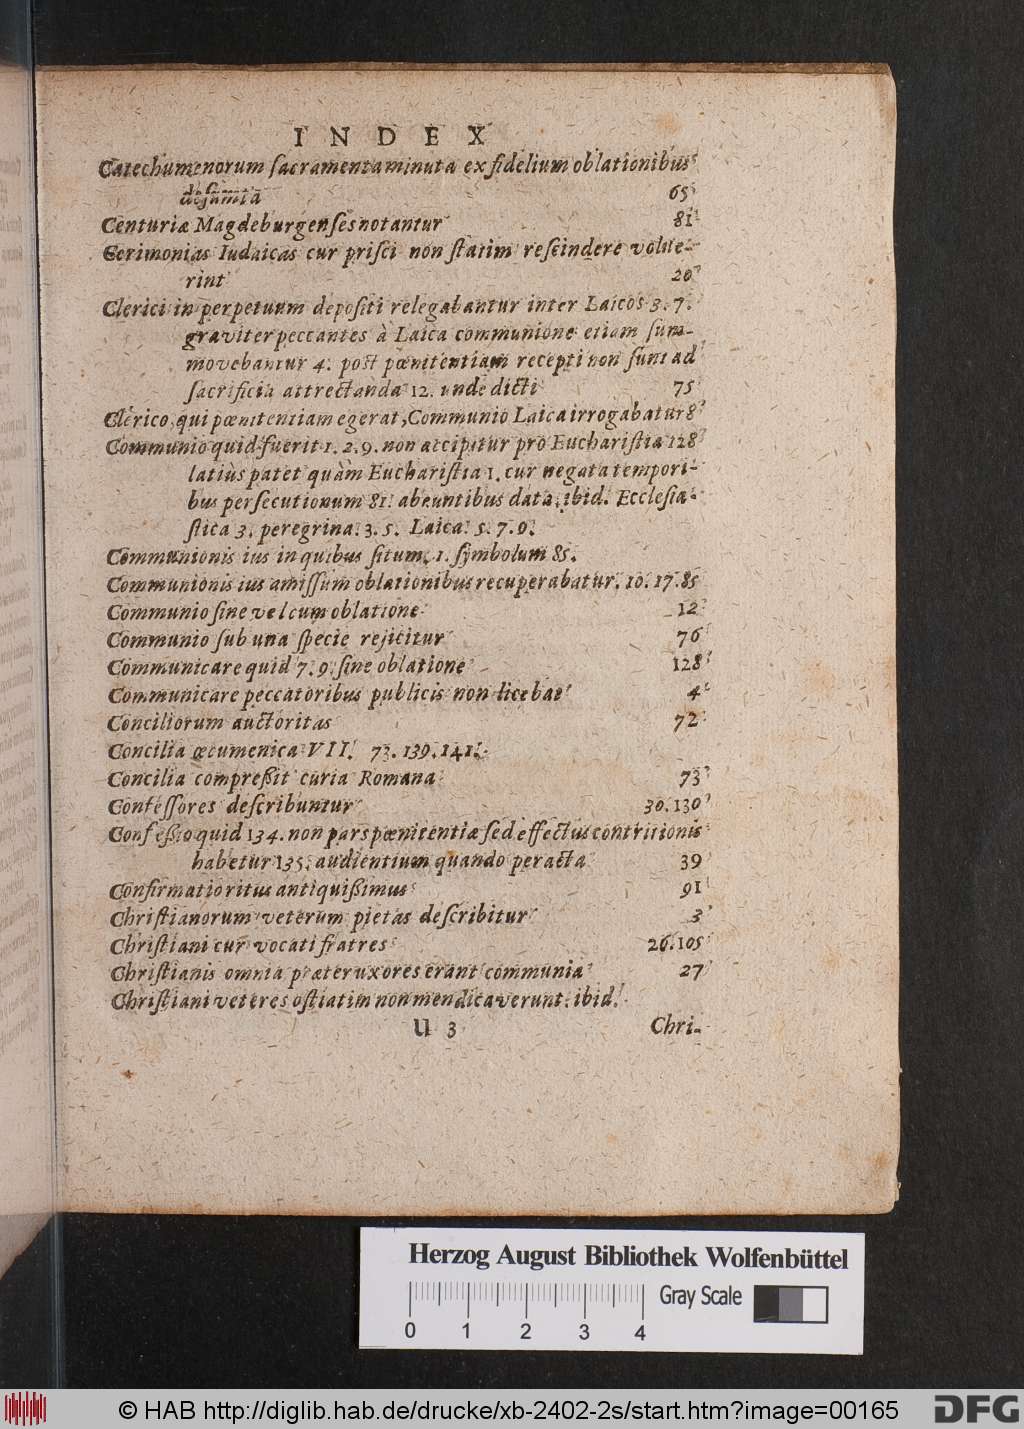 INDEX
Catechumenorum sacramenta minuta ex fidelium oblationibus
desumta 65
Centuriæ Magdeburgenses notantur 81
Cerimonias Iudaicas cur prisci non statim rescindere volue-
rint 20
Clerici in perpetuum depositi relegabantur inter Laicos 3. 7.
graviter peccantes à Laica communione etiam sum-
movebantur 4. post pœnitentiam recepti non sunt ad
sacrificia attrectanda 12. unde dicti 75
Clerico, qui pœnitentiam egerat, Communio Laica irrogabatur 8
Communio quid fuerit 1. 2. 9. non accipitur pro Eucharistia 128
latiùs patet quàm Eucharistia 1. cur negata tempori-
bus persecutionum 81. abeuntibus data. ibid. Ecclesia-
stica 3. peregrina. 3. 5. Laica. 5. 7. 9.
Communionis ius in quibus situm. 1. symbolum 85.
Communionis ius amissum oblationibus recuperabatur. 10. 17. 85
Communio sine vel cum oblatione 12
Communio sub una specie rejicitur 76
Communicare quid 7. 9. sine oblatione 128
Communicare peccatoribus publicis non licebat 4
Conciliorum auctoritas 72
Concilia œcumenica VII. 73. 139. 141.
Concilia compreßit curia Romana 73
Confessores describuntur 30. 130
Confeßio quid 134. non pars pœnitentiæ sed effectus contritionis
habetur 135. audientium quando peracta 39
Confirmatio ritus antiquißimus 91
Christianorum veterum pietas describitur 3
Christiani cur vocati fratres 26. 105
Christianis omnia præter uxores erant communia 27
Christiani veteres ostiatim non mendicaverunt. ibid.
U 3 Chri-
Herzog August Bibliothek Wolfenbüttel
Gray Scale
0 1 2 3 4
© HAB http://diglib.hab.de/drucke/xb-2402-2s/start.htm?image=00165
DFG